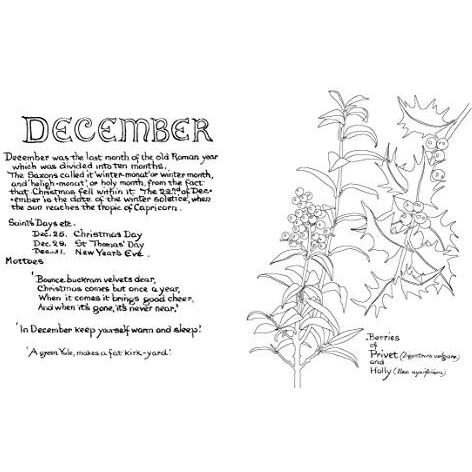 DECEMBER
December was the last month of the old Roman year
which was divided into ten months.
The Saxons called it 'winter-monat' or winter month,
and 'heligh-monat', or holy month, from the fact
that Christmas fell within it. The 22nd of Dec-
ember is the date of the winter solstice, when
the sun reaches the tropic of Capricorn.
Saint's Days etc.
Dec. 25. Christmas Day
Dec. 29. St Thomas' Day
Dec. 31. New Year's Eve.
Mottoes
'Bounce buckram velvets dear,
Christmas comes but once a year,
When it comes it brings good cheer,
And when it's gone, it's never near.'
'In December keep yourself warm and sleep.'
'A green Yule, makes a fat kirk-yard.'
Berries
of
Privet (Ligustrum vulgare)
and
Holly (Ilex aquifolium)